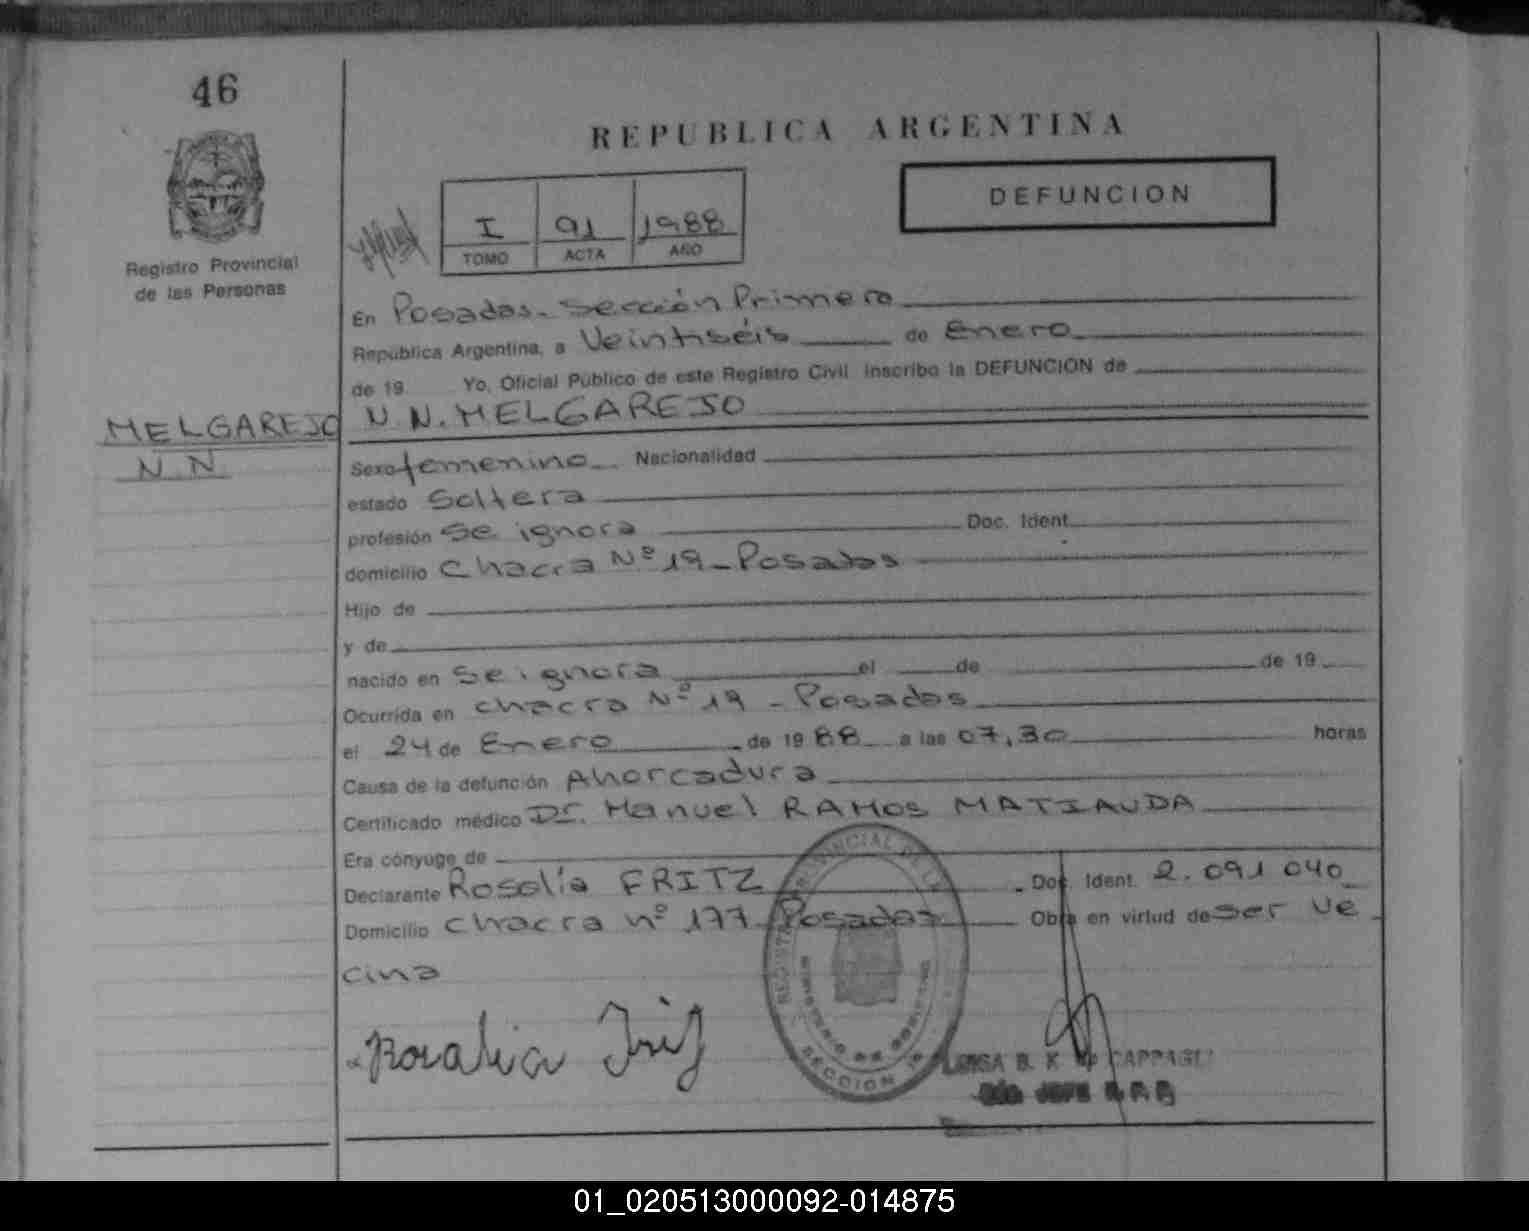 46
REPUBLICA ARGENTINA
DEFUNCION
I 91 1988
TOMO ACTA AÑO
Registro Provincial
de las Personas
En Posadas - Sección Primera
República Argentina, a Veintiséis de Enero
de 19 Yo, Oficial Público de este Registro Civil inscribo la DEFUNCION de
MELGAREJO N.N. MELGAREJO
N.N.
Sexo femenino Nacionalidad
estado Soltera
profesión se ignora Doc. Ident.
domicilio Chacra Nº 19 - Posadas
Hijo de
y de
nacido en Se ignora el de de 19
Ocurrida en chacra Nº 19 - Posadas
el 24 de Enero de 1988 a las 07,30 horas
Causa de la defunción Ahorcadura
Certificado médico Dr. Manuel RAMOS MATIAUDA
Era cónyuge de
Declarante Rosalía FRITZ Doc. Ident. 2.091 040
Domicilio chacra nº 177 - Posadas Obra en virtud de ser ve
cina
Rosalia Friz
REGISTRO PROVINCIAL DE LA
MINISTERIO DE GOBIERNO
SECCION 1a
B. K. de CAPPAGLI
JEFE
01_020513000092-014875